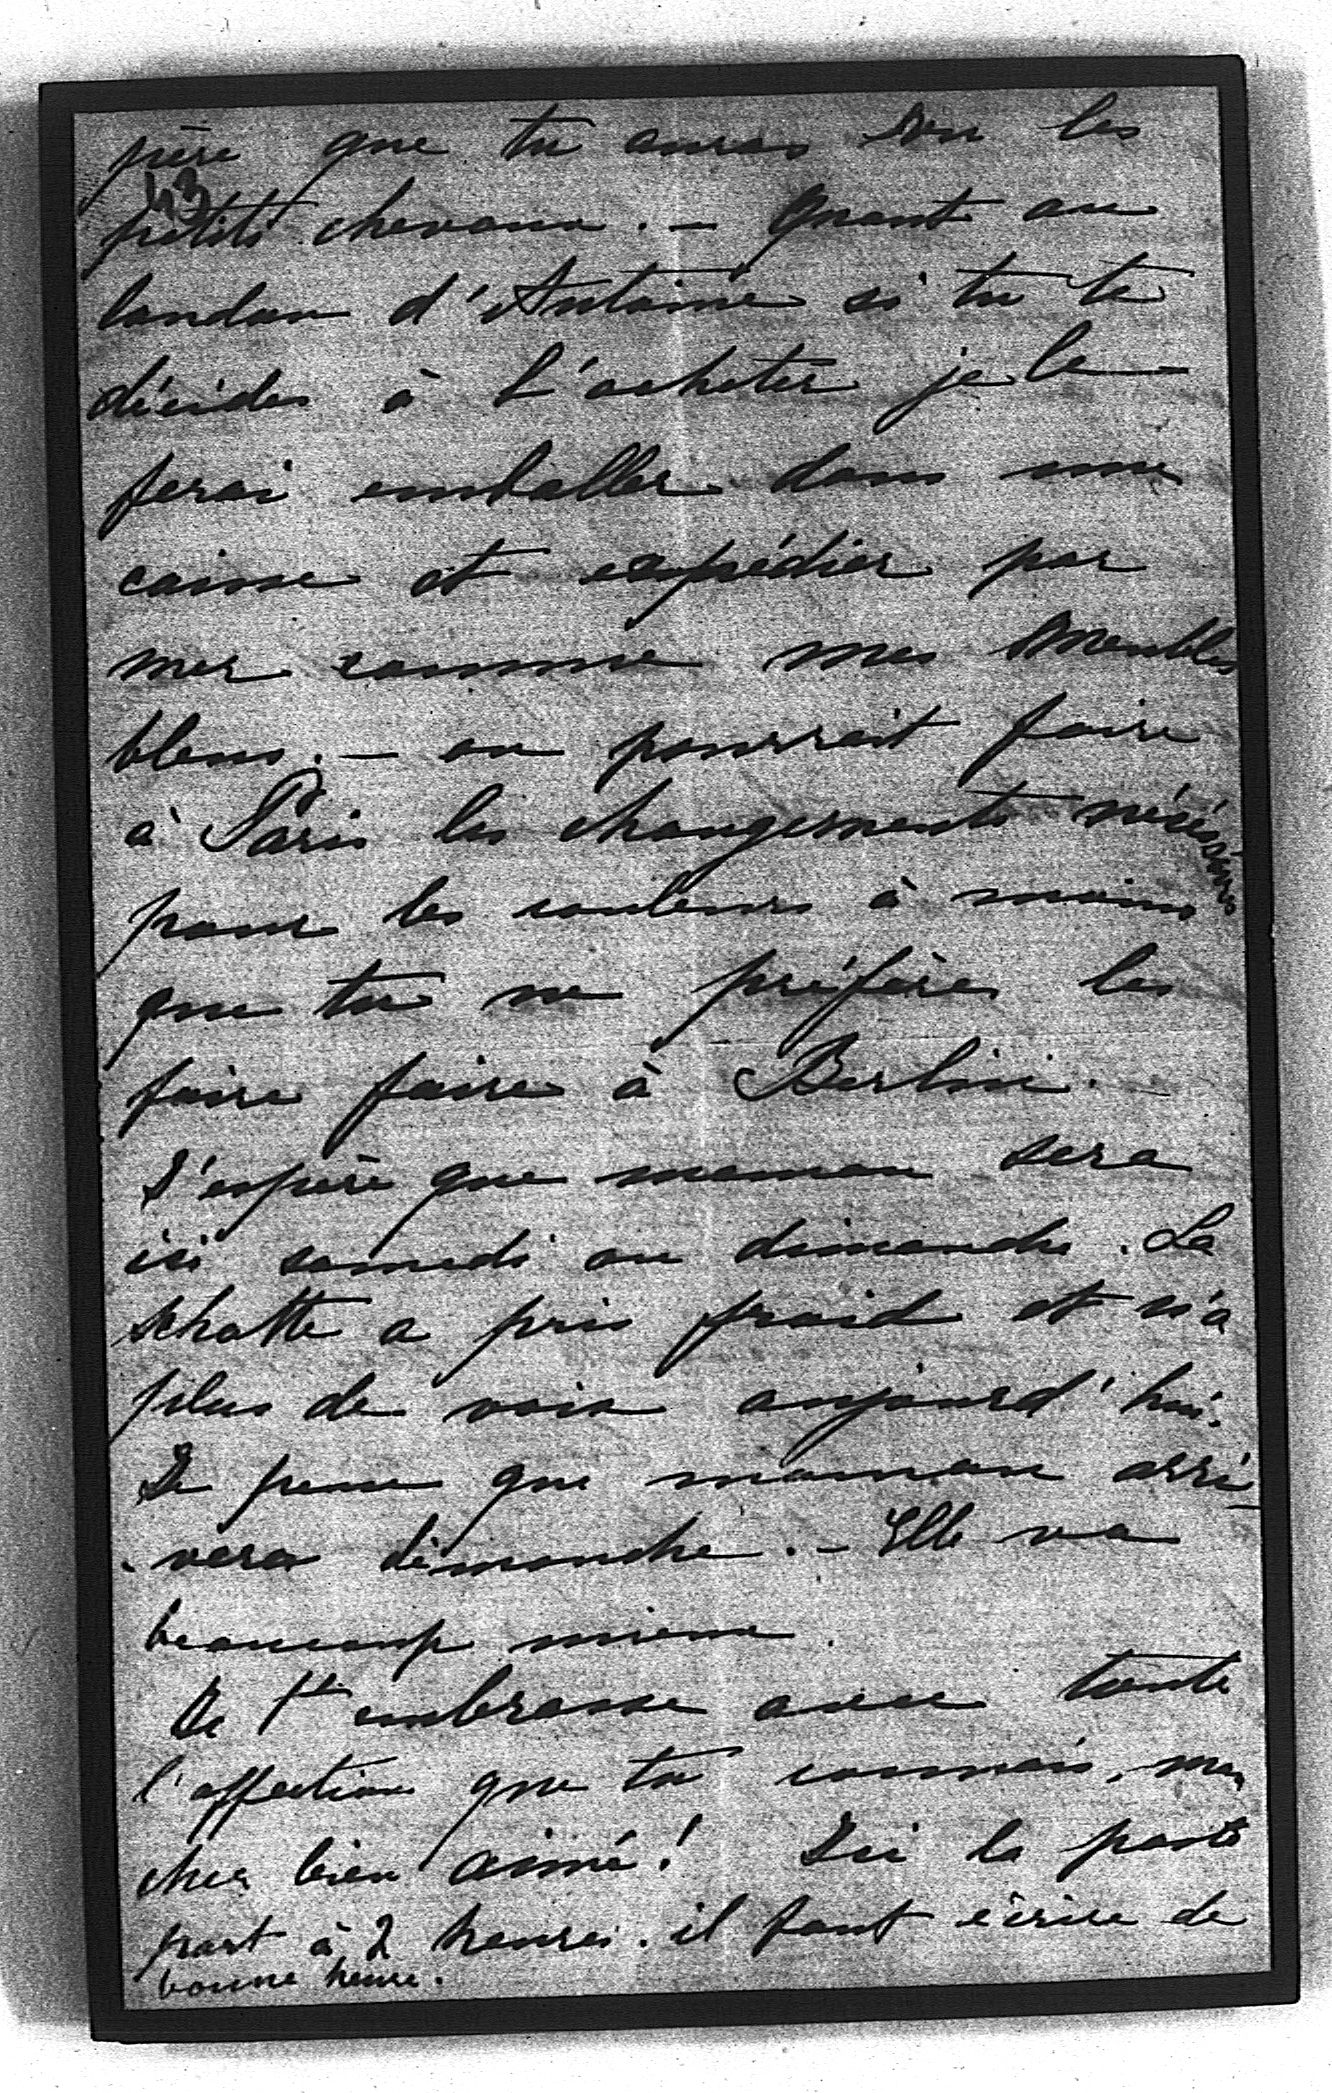 père que tu auras vu les
43
petits chevaux. — Quant au
landau d'Antoine si tu te
décides à l'acheter je le
ferai emballer dans une
caisse et expédier par
mer comme mes meubles
bleus. — on pourrait faire
à Paris les changements nécésaires
pour les couleurs à moins
que tu ne préfères les
faire faire à Berlin.
J'espère que maman sera
ici samedi ou dimanche. La
chatte a pris froid et n'a
plus de voix aujourd'hui.
Je pense que maman arri-
-vera dimanche. — Elle va
beaucoup mieux.
Je t'embrasse avec toute
l'affection que tu connais, mon
cher bien aimé! Ici la poste
part à 2 heures. il faut écrire de
bonne heure.